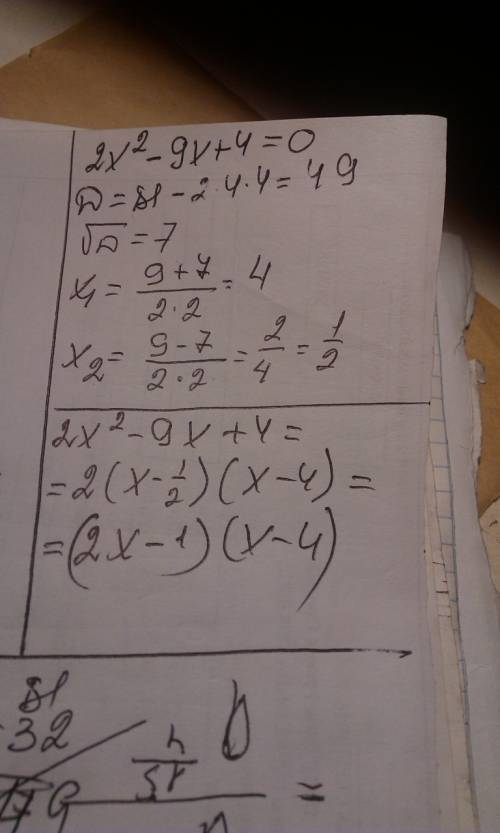 2x² - 9x + 4 = 0
D = 81 - 2·4·4 = 49
√D = 7
x₁ = (9+7)/(2·2) = 4
x₂ = (9-7)/(2·2) = 2/4 = 1/2
2x² - 9x + 4 =
= 2(x - 1/2)(x - 4) =
= (2x - 1)(x - 4)
81
32
=